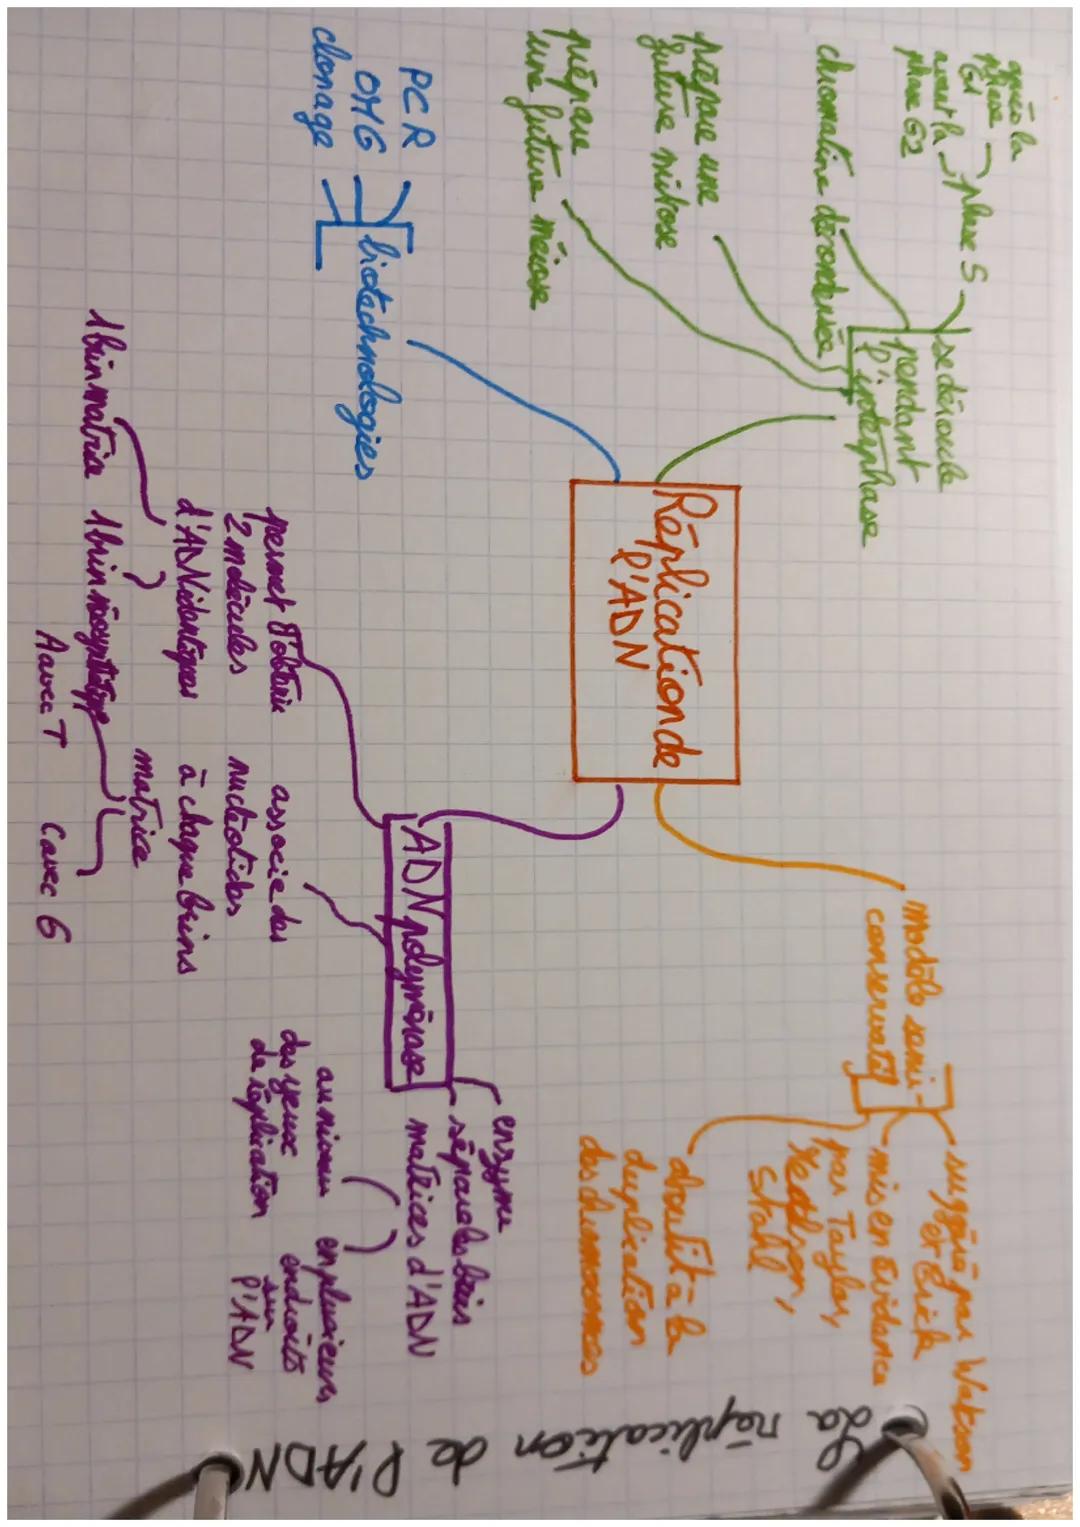 La réplication de l'ADN
Réplication de
l'ADN
se déroule
pendant
l'interphase
phase S
après la
phase
G1
avant la
phase G2
chromatine décondensée
prépare une
future mitose
prépare
une future méiose
biotechnologies
PCR
OMG
clonage
modèle semi-
conservatif
suggéré par Watson
et Crick
mis en évidence
par Taylor,
Stahl
aboutit à la
duplication
des chromosomes
ADN polymérase
enzyme
sépare les brins
matrices d'ADN
au niveau
des yeux
de réplication
en plusieurs
endroits
sur
l'ADN
associe des
nucléotides
à chaque brins
matrice
permet d'obtenir
2 molécules
d'ADN identiques
1 brin matrice
1 brin
A avec T
C avec G